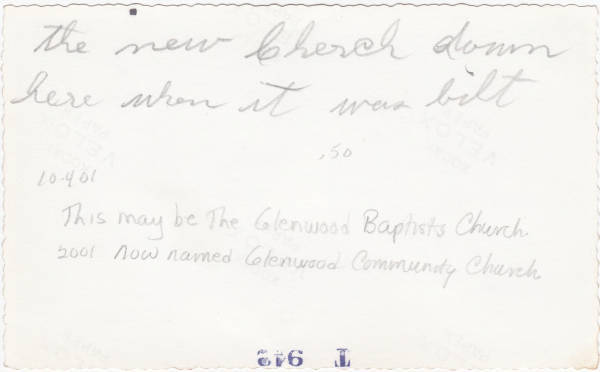 the new Cherch down
here when it was bilt
.50
10-4 01
This may be The Glenwood Baptists Church.
2001 now named Glenwood Community Church